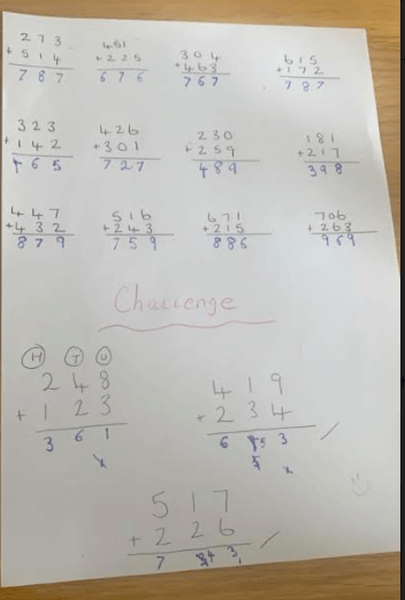 273 451 304 615
+514 +225 +463 +172
787 676 767 787
323 426 230 181
+142 +301 +259 +217
465 727 489 398
447 516 671 706
+432 +243 +215 +263
879 759 886 969
Challenge
H T U
248 419
+123 +234
361 653
517
+226
743